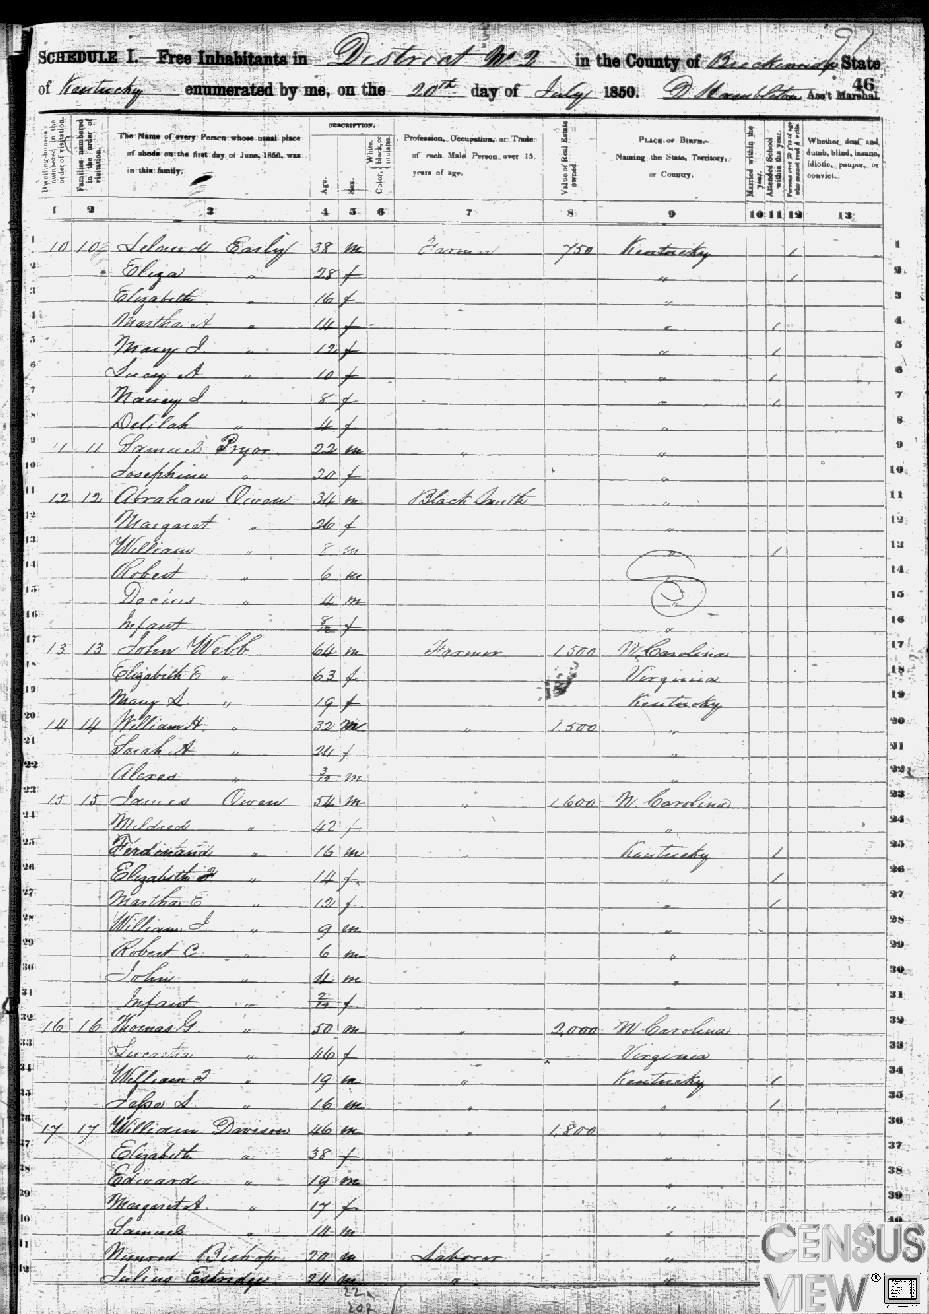 91
SCHEDULE I.—Free Inhabitants in District No 2 in the County of Breckenridge State
46
of Kentucky enumerated by me, on the 20th day of July 1850. Ass't Marshal
DESCRIPTION.
Dwelling-houses numbered in the order of visitation.
Families numbered in the order of visitation.
The Name of every Person whose usual place of abode on the first day of June, 1850, was in this family.
Age.
Sex.
Color, White, black, or mulatto.
Profession, Occupation, or Trade of each Male Person over 15 years of age.
Value of Real Estate owned.
PLACE OF BIRTH. Naming the State, Territory, or Country.
Married within the year.
Attended School within the year.
Persons over 20 y'rs of age who cannot read & write.
Whether deaf and dumb, blind, insane, idiotic, pauper, or convict.
1 2 3 4 5 6 7 8 9 10 11 12 13
1 10 10 Early 38 m Farmer 750 Kentucky 1 1
2 Eliza " 28 f " 1 2
3 Elizabeth " 16 f " 3
4 Martha A " 14 f " 1 4
5 Mary J. " 12 f " 1 5
6 Lucy A " 10 f " 1 6
7 Nancy J " 8 f " 1 7
8 Delilah " 4 f " 8
9 11 11 Samuel Pryor 22 m " " 9
10 Josephine " 20 f " 10
11 12 12 Abraham Owen 34 m Black Smith " 11
12 Margaret " 26 f " 12
13 William " 8 m " 1 13
14 Robert " 6 m " 14
15 " 4 m " 15
16 Infant f " 16
17 13 13 John Webb 64 m Farmer 1500 N. Carolina 17
18 Elizabeth E " 63 f Virginia 18
19 Mary S " 19 f Kentucky 19
20 14 14 William H. " 32 m " 1500 " 20
21 Sarah A " 24 f " 21
22 " m " 22
23 15 15 James Owen 54 m " 1600 N. Carolina 23
24 Mildred " 42 f " 24
25 Ferdinand " 16 m " Kentucky 1 25
26 Elizabeth F " 14 f " 1 26
27 Martha E " 12 f " 1 27
28 William J " 9 m " 28
29 Robert C. " 6 m " 29
30 John " 4 m " 30
31 Infant " 2/12 f " 31
32 16 16 Thomas G. " 50 m " 2,000 N. Carolina 32
33 " 46 f Virginia 33
34 William F " 19 m " Kentucky 1 34
35 " 16 m " " 1 35
36 17 17 William Davison 46 m " 1,800 " 36
37 Elizabeth " 38 f " 37
38 Edward " 19 m " " 38
39 Margaret A. " 17 f " 39
40 Samuel " m " 40
41 Bishop 20 m Laborer " 41
42 Julius Estridge 24 m " " 42
22
202
CENSUS VIEW ®